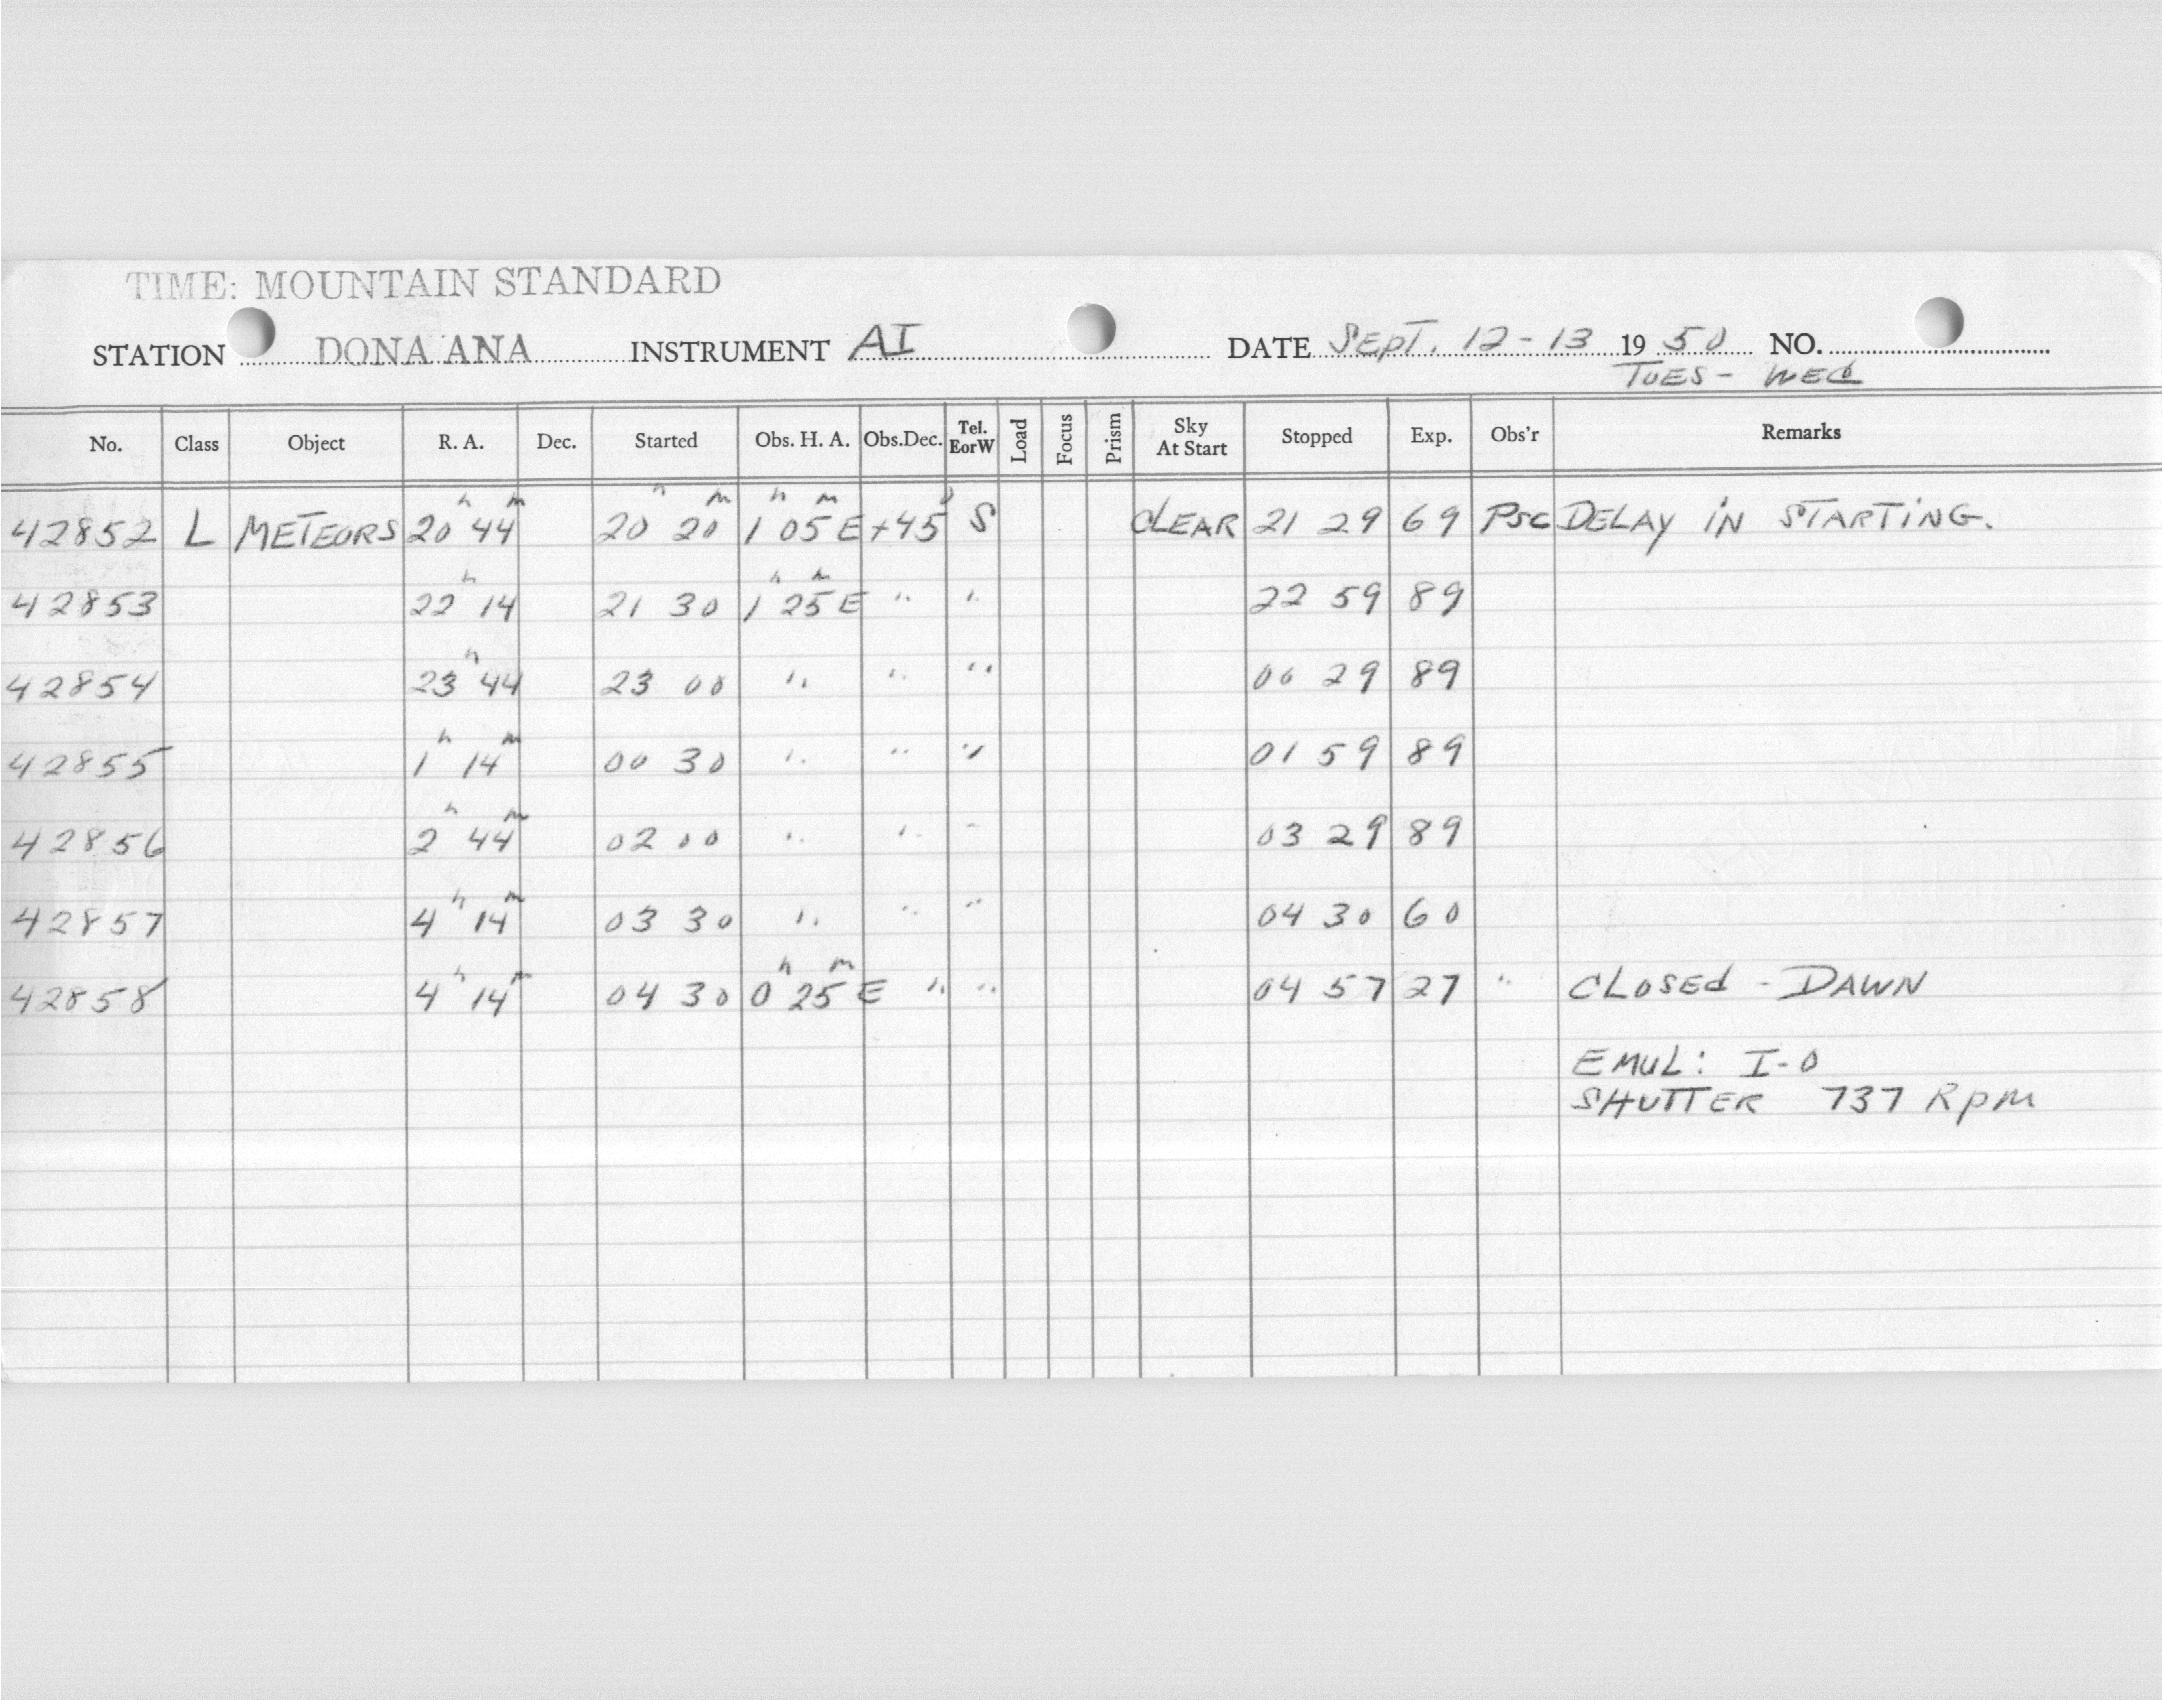 TIME: MOUNTAIN STANDARD
STATION DONA ANA INSTRUMENT AI DATE SEPT. 12-13 1950 NO.
TUES- WED
No. Class Object R. A. Dec. Started Obs. H. A. Obs.Dec. Tel. EorW Load Focus Prism Sky At Start Stopped Exp. Obs'r Remarks
42852 L METEORS 20h 44m 20h 20m 1h 05m E +45° S CLEAR 21 29 69 PSC DELAY iN STARTiNG.
42853 22h 14 21 30 1h 25m E " " 22 59 89
42854 23h 44 23 00 " " " 00 29 89
42855 1h 14m 00 30 " " " 01 59 89
42856 2h 44m 02 00 " " " 03 29 89
42857 4h 14m 03 30 " " " 04 30 60
42858 4h 14m 04 30 0h 25m E " " 04 57 27 " CLOSEd - DAWN
EMUL: I-O
SHUTTER 737 RPM